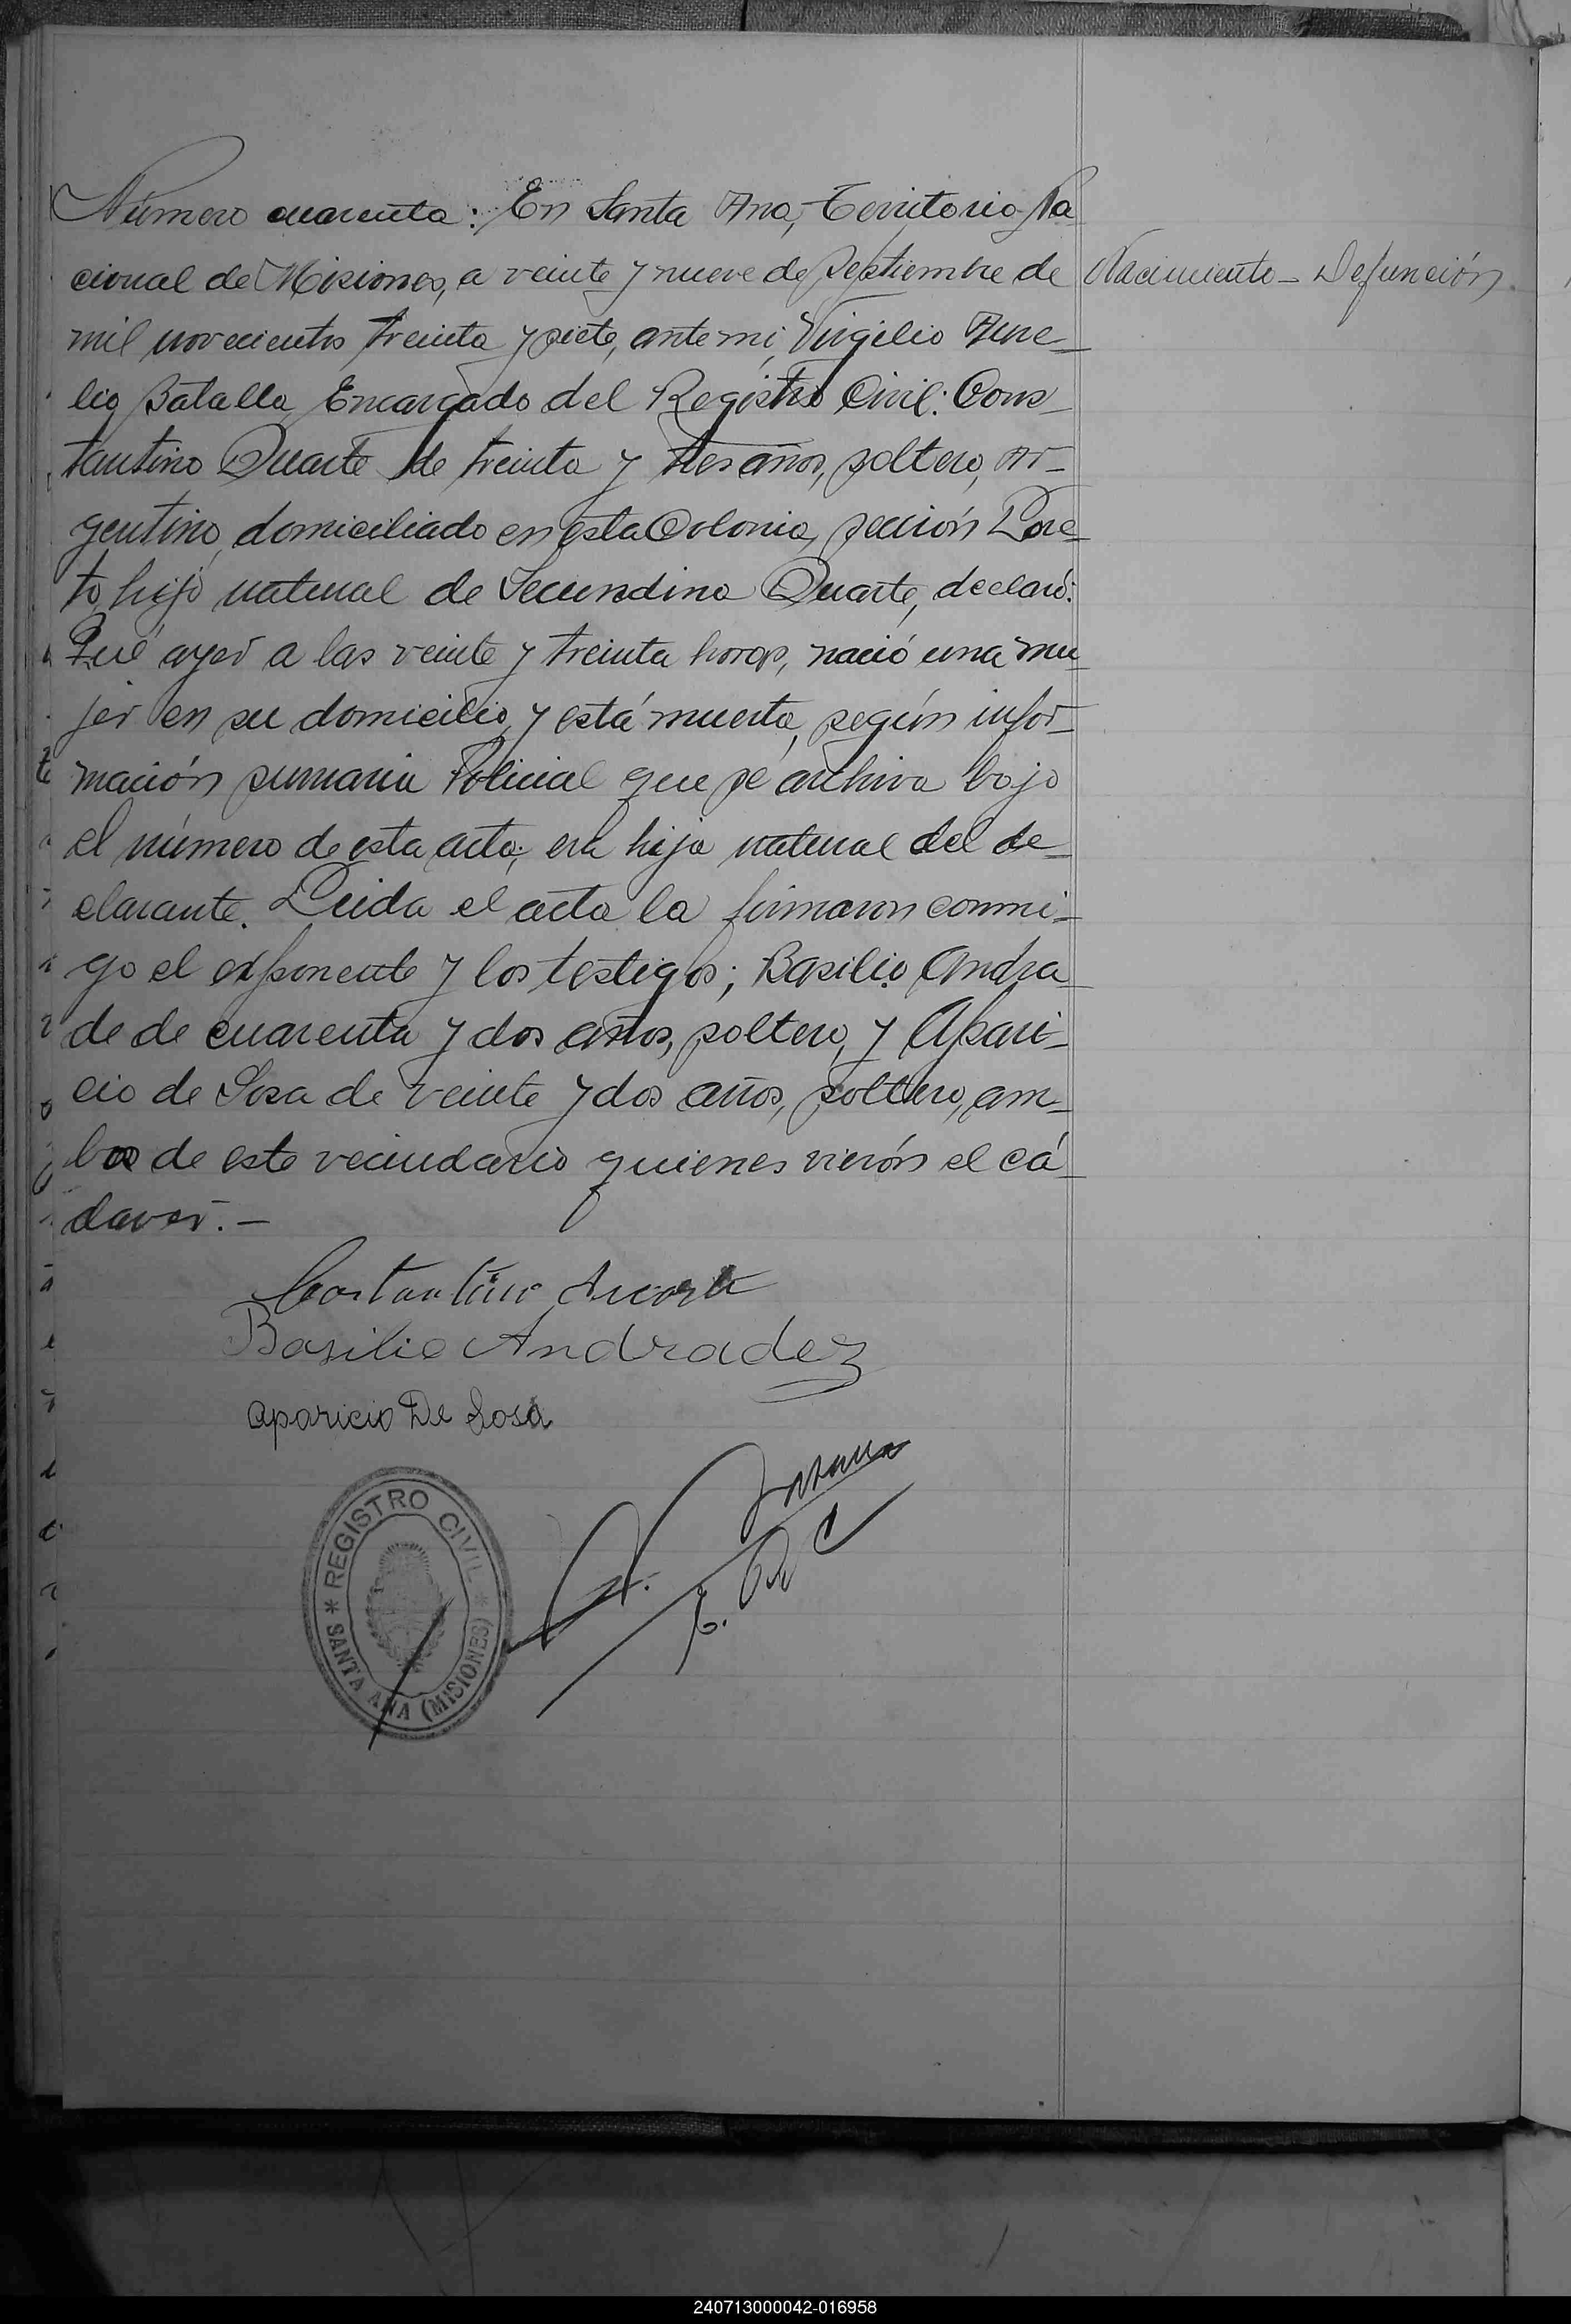 Número cuarenta: En Santa Ana, Territorio Na
cional de Misiones, a veinte y nueve de Septiembre de
Nacimiento - Defunción
mil novecientos treinta y siete, ante mi, Virgilio Aure-
lio Batalla Encargado del Registro Civil: Cons-
tantino Duarte de treinta y tres años, soltero, Ar-
gentino, domiciliado en esta Colonia, sección Lore-
to, hijo natural de Secundina Duarte, declaró:
Qué ayer a las veinte y treinta horas, nació una mu
jer en su domicilio, y está muerta, según infor-
mación sumaria Policial que se archiva bajo
el número de esta acta; era hija natural del de-
clarante. Leida el acta la firmaron conmi-
go el exponente y los testigos; Basilio Andra-
de de cuarenta y dos años, soltero, y Apari-
cio de Sosa de veinte y dos años, soltero, am-
bos de este vecindario quienes vierón el cá-
daver.-
Costantino Duarte
Basilio Andradez
Aparicio De Sosa
REGISTRO CIVIL
SANTA ANA (MISIONES)
240713000042-016958